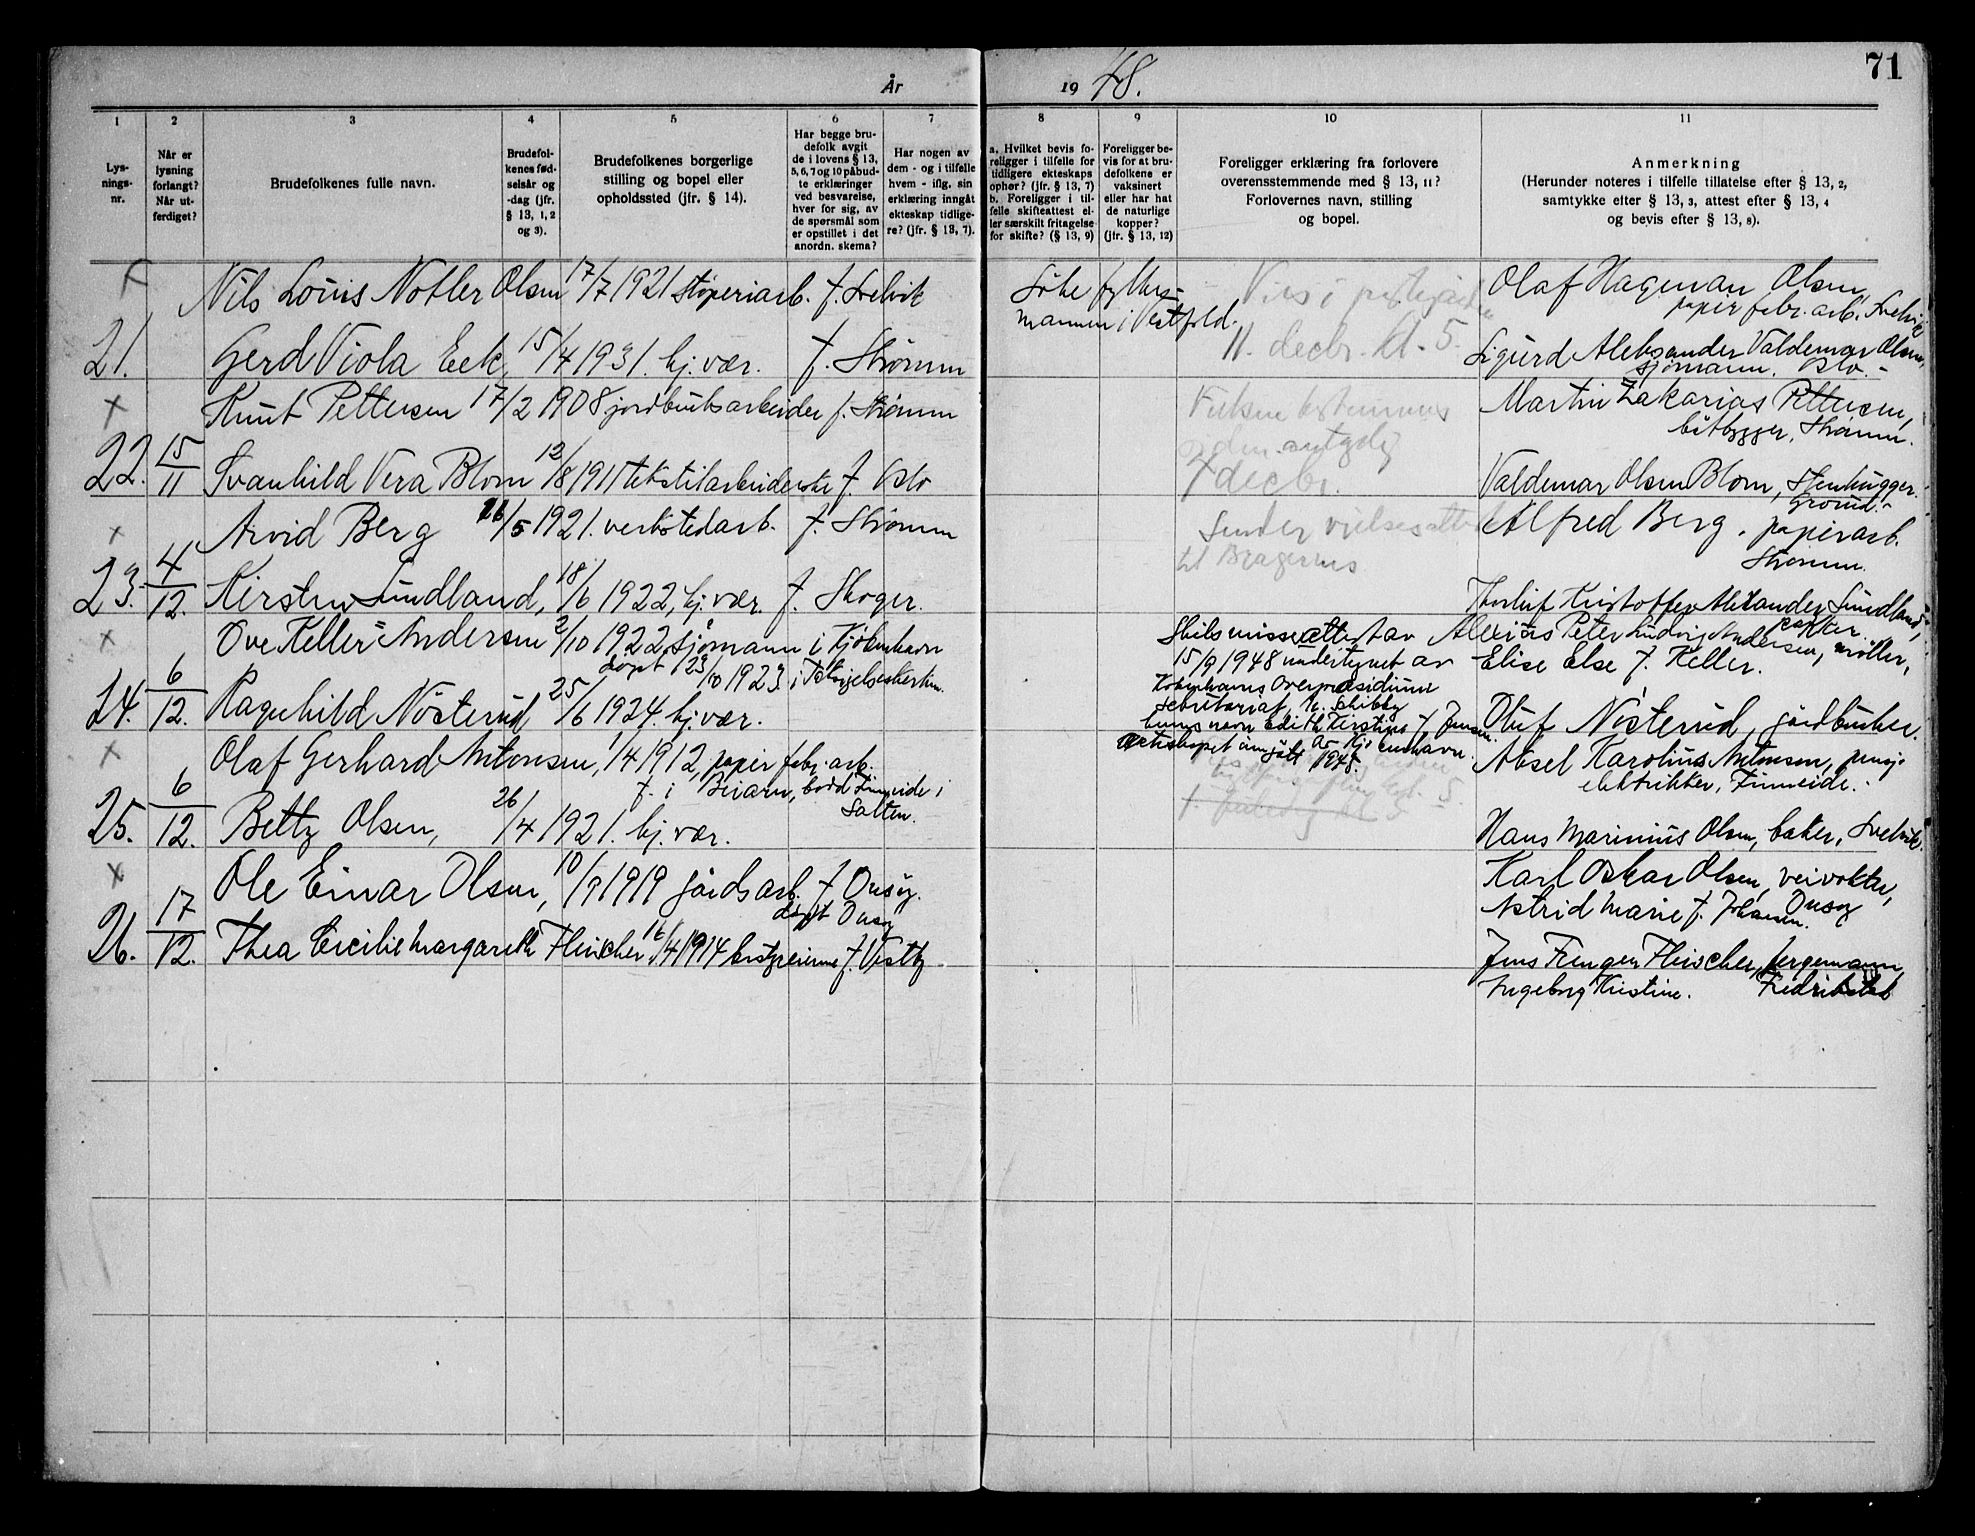 71
År 1948.
1 2 3 4 5 6 7 8 9 10 11
Lys-
nings-
nr.
Når er
lysning
forlangt?
Når ut-
ferdiget?
Brudefolkenes fulle navn.
Brudefol-
kenes fød-
selsår og
-dag (jfr.
§ 13, 1, 2
og 3).
Brudefolkenes borgerlige
stilling og bopel eller
opholdssted (jfr. § 14).
Har begge bru-
defolk avgit
de i lovens § 13,
5, 6, 7 og 10 påbud-
te erklæringer
ved besvarelse,
hver for sig, av
de spørsmål som
er opstillet i det
anordn. skema?
Har nogen av
dem - og i tilfelle
hvem - iflg. sin
erklæring inngåt
ekteskap tidlige-
re? (jfr. § 13, 7).
a. Hvilket bevis fo-
religger i tilfelle for
tidligere ekteskaps
ophør? (jfr. § 13, 7)
b. Foreligger i til-
felle skifteattest el-
ler særskilt fritagelse
for skifte? (§ 13, 9)
Foreligger be-
vis for at bru-
defolkene er
vaksinert
eller har hat
de naturlige
kopper?
(jfr. § 13, 12)
Foreligger erklæring fra forlovere
overensstemmende med § 13, 11?
Forlovernes navn, stilling
og bopel.
Anmerkning
(Herunder noteres i tilfelle tillatelse efter § 13, 2,
samtykke efter § 13, 3, attest efter § 13, 4
og bevis efter § 13, 8).
Nils Louis Notler Olsen 17/7 1921 støperiarb. f. Svelvik
Söke fylkes-
mannen i Vestfold.
Vies i
11. decbr. kl. 5.
Olaf Hageman Olsen,
papir fabr. arb. Svelvik
21. Gerd Viola Eek, 15/4 1931. hj. vær. f. Strømm
Sigurd Aleksander Valdemar Olsen,
sjømann. Oslo.-
x Knut Pettersen 17/2 1908 jordbruksarbeider f. Strømm
Martin Zakarias Pettersen,
båtbygger, Strømm.
22. 15/11 Svanhild Vera Blom 12/8 1911 tekstilarbeiderske f. Oslo
decbr.
Valdemar Olsen Blom, Stenhugger.
Grorud.-
x Arvid Berg 26/5 1921. verkstedarb. f. Strømm
Sender vielsesattest
til Bragernes
Alfred Berg. papirarb.
Strømm.
23. 4/12. Kirsten Sundland, 18/6 1922, hj. vær. f. Skoger.
Kristoffer Alexander Sundland,
x Ove Keller = Andersen 2/10 1922 sjømann i Kjöbenhavn
döpt 23/10 1923 i
Skilsmisseattest av
15/9 1948 undertegnet av
Københavns Overpræsidium
Sekretariat,
hans navn Edith Kirstine f. Jensen.
ekteskapet inngått
1945.
Alexius Peter Ludvig Andersen, møller,
Elise Else f. Keller.
24. 6/12. Ragnhild Nösterud 25/6 1924. hj. vær.
Oluf Nösterud, jordbruker.
x Olaf Gerhard Antonsen, 1/4 1912, papir fabr. arb.
f. i Beiarn, bodd Finneide i
Salten.
Aksel Karolius Antonsen, pensj.
elektrikker, Finneide.-
25. 6/12. Betty Olsen, 26/4 1921. hj. vær.
Hans Marinius Olsen, baker, Svelvik.
x Ole Einar Olsen, 10/9 1919 gårdsarb. f. Onsøy.
døpt Onsøy
Karl Oskar Olsen, veivokter,
Astrid Marie f. Johansen. Onsøy
26. 17/12. Thea Cecilie Margareth Fleischer 16/4 1914 bestyrerinne f. Vestby
Jens Frengen Fleischer, bergemann,
Ingeborg Kristine. Fredrikstad